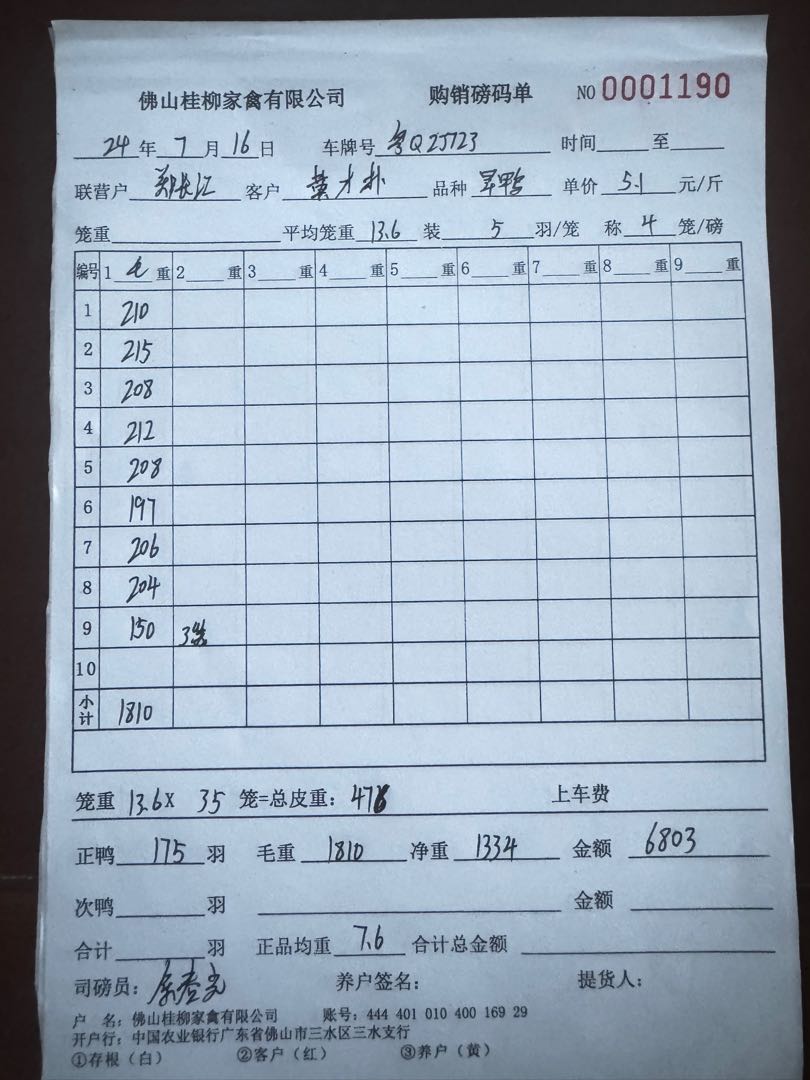 佛山桂柳家禽有限公司 购销磅码单 NO 0001190
24年7月16日 车牌号 粤Q2J723 时间 至
联营户 郑长江 客户 黄才朴 品种 旱鸭 单价 5.1 元/斤
笼重 平均笼重 13.6 装 5 羽/笼 称 4 笼/磅
编号 1 毛 重 2 重 3 重 4 重 5 重 6 重 7 重 8 重 9 重
1 210
2 215
3 208
4 212
5 208
6 197
7 206
8 204
9 150 3笼
10
小计 1810
笼重 13.6X 35 笼=总皮重: 476 上车费
正鸭 175 羽 毛重 1810 净重 1334 金额 6803
次鸭 羽 金额
合计 羽 正品均重 7.6 合计总金额
司磅员: 养户签名: 提货人:
户 名: 佛山桂柳家禽有限公司 账号: 444 401 010 400 169 29
开户行: 中国农业银行广东省佛山市三水区三水支行
①存根(白) ②客户(红) ③养户(黄)